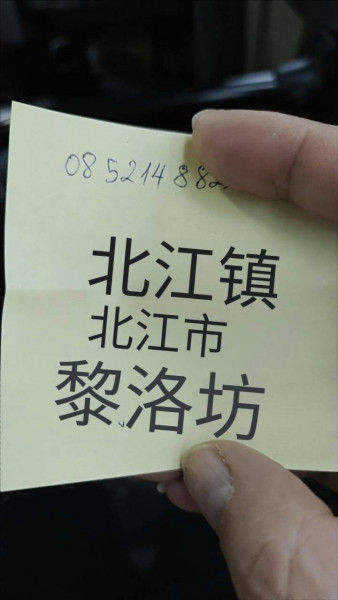 08 5214 8 82
北江镇
北江市
黎洛坊